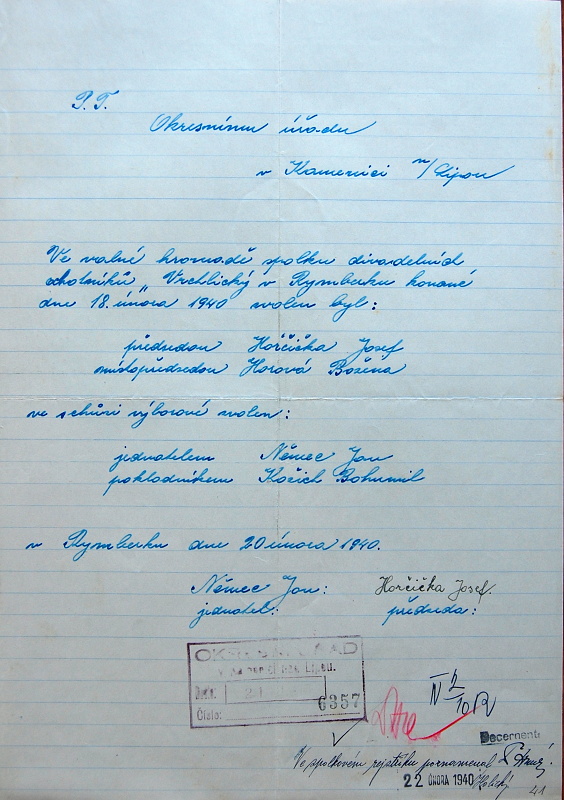 P. T.
Okresnímu úřadu
v Kamenici n/Lipou
Ve valné hromadě spolku divadelních
ochotníků „Vrchlický v Rymberku konané
dne 18. února 1940 volen byl:
předsedou Horčička Josef
místopředsedou Horová Božena
ve schůzi výborové volen:
jednatelem Němec Jan
pokladníkem Kočich Bohumil
v Rymberku dne 20 února 1940.
Němec Jan: Horčička Josef.
jednatel: předseda:
OKRESNÍ ÚŘAD
v Kamenici nad Lipou.
Došlo:
Číslo: 6357
IV 2/10
Decernent:
Ve spolkovém rejstříku poznamenal
22 ÚNORA 1940
41